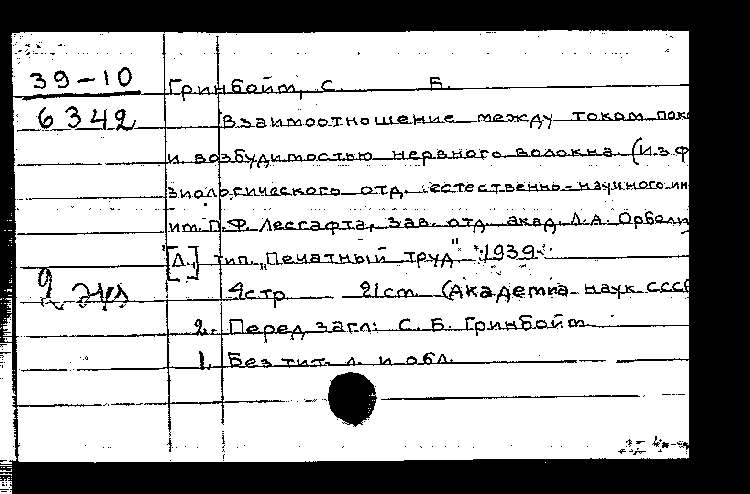 39-10
6342
Гринбойт, С. Б.
Взаимоотношение между током пок
и возбудимостью нервного волокна. (Из ф
зиологического отд. естественно-научного ин
им. П.Ф. Лесгафта, зав. отд. акад. Л.А. Орбели
[Л.], тип. „Печатный труд" 1939.
2 экз
4стр 21см. (Академия наук СССР
2. Перед загл: С. Б. Гринбойт
1. Без тит. л. и обл.